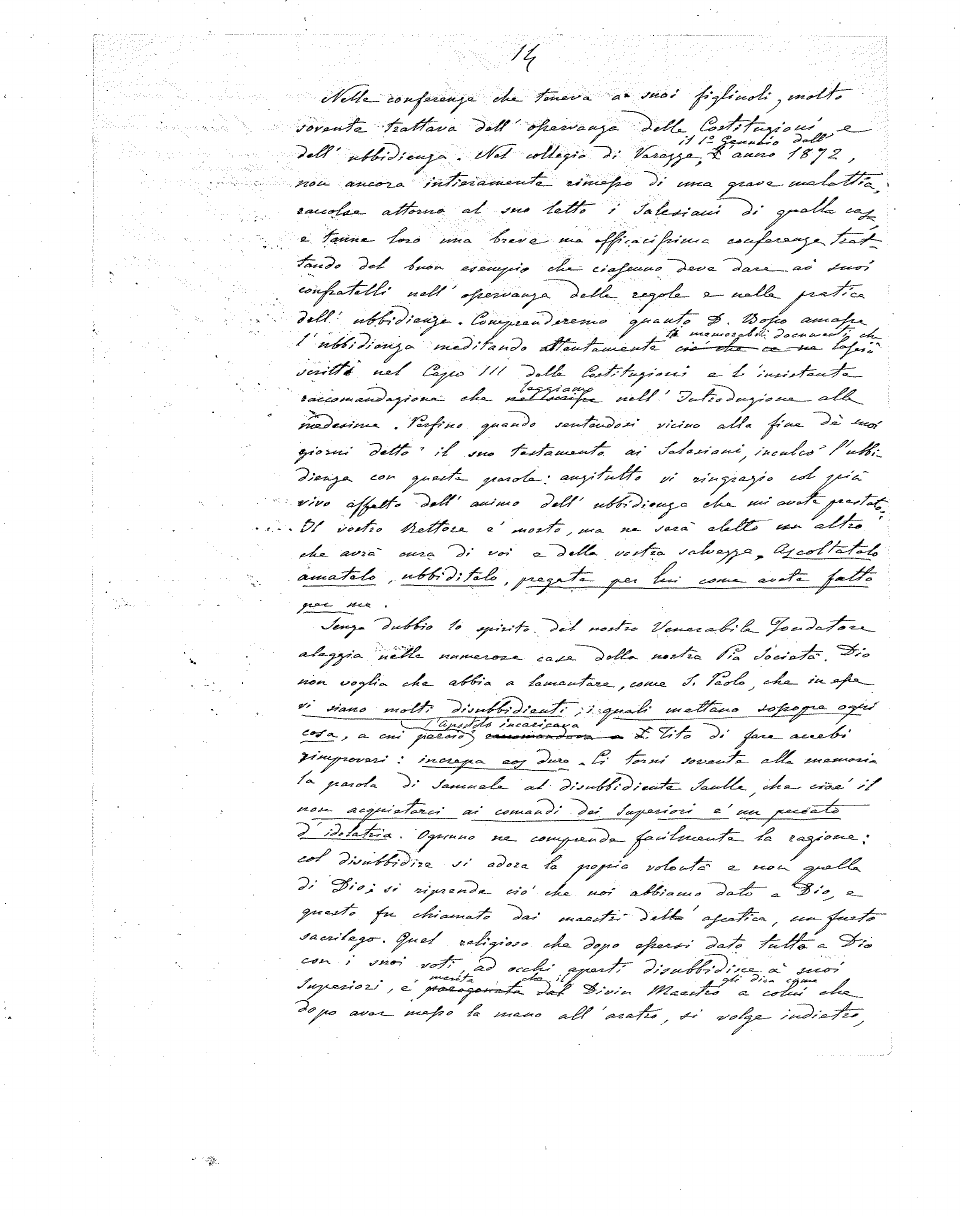 14
Nelle conferenze che teneva a' suoi figliuoli, molto
sovente trattava dell' osservanza delle Costituzioni e
il 1° Gennaio dell'
dell' ubbidienza. Nel collegio di Varazze, anno 1872,
non ancora intieramente rimesso di una grave malattia,
raccolse attorno al suo letto i Salesiani di quella casa
e tenne loro una breve ma efficacissima conferenza trat-
tando del buon esempio che ciascuno deve dare ai suoi
confratelli nell' osservanza delle regole e nella pratica
dell' ubbidienza. Comprenderemo quanto D. Bosco amasse
i memorabili documenti che
l' ubbidienza meditando attentamente ciò che ce ne lasciò
scritti nel Capo III delle Costituzioni e l' insistente
leggiamo
raccomandazione che nell' Introduzione alle
medesime. Perfino quando sentendosi vicino alla fine de' suoi
giorni dettò il suo testamento ai Salesiani, inculcò l' ubbi-
dienza con queste parole: anzitutto vi ringrazio col più
vivo affetto dell' animo dell' ubbidienza che mi avete prestato.
Il vostro Rettore è morto, ma ne sarà eletto un altro
che avrà cura di voi e della vostra salvezza. Ascoltatelo
amatelo, ubbiditelo, pregate per lui come avete fatto
per me.
Senza dubbio lo spirito del nostro Venerabile Fondatore
aleggia nelle numerose case della nostra Pia Società. Dio
non voglia che abbia a lamentare, come S. Paolo, che in esse
vi siano molti disubbidienti, i quali mettano sossopra ogni
l' Apostolo incaricava
cosa, a cui perciò raccomandava a Tito di fare acerbi
rimproveri: increpa eos dure. Ci torni sovente alla memoria
la parola di Samuele al disubbidiente Saulle, che cioè il
non acquietarci ai comandi dei Superiori è un peccato
d' idolatria. Ognuno ne comprende facilmente la ragione:
col disubbidire si adora la propria volontà e non quella
di Dio; si riprende ciò che noi abbiamo dato a Dio, e
questo fu chiamato dai maestri della ascetica, un furto
sacrilego. Quel religioso che dopo essersi dato tutto a Dio
con i suoi voti, ad occhi aperti disubbidisce a' suoi
merita che il gli dica come
Superiori, è paragonato dal Divin Maestro a colui che
dopo aver messo la mano all' aratro, si volge indietro,